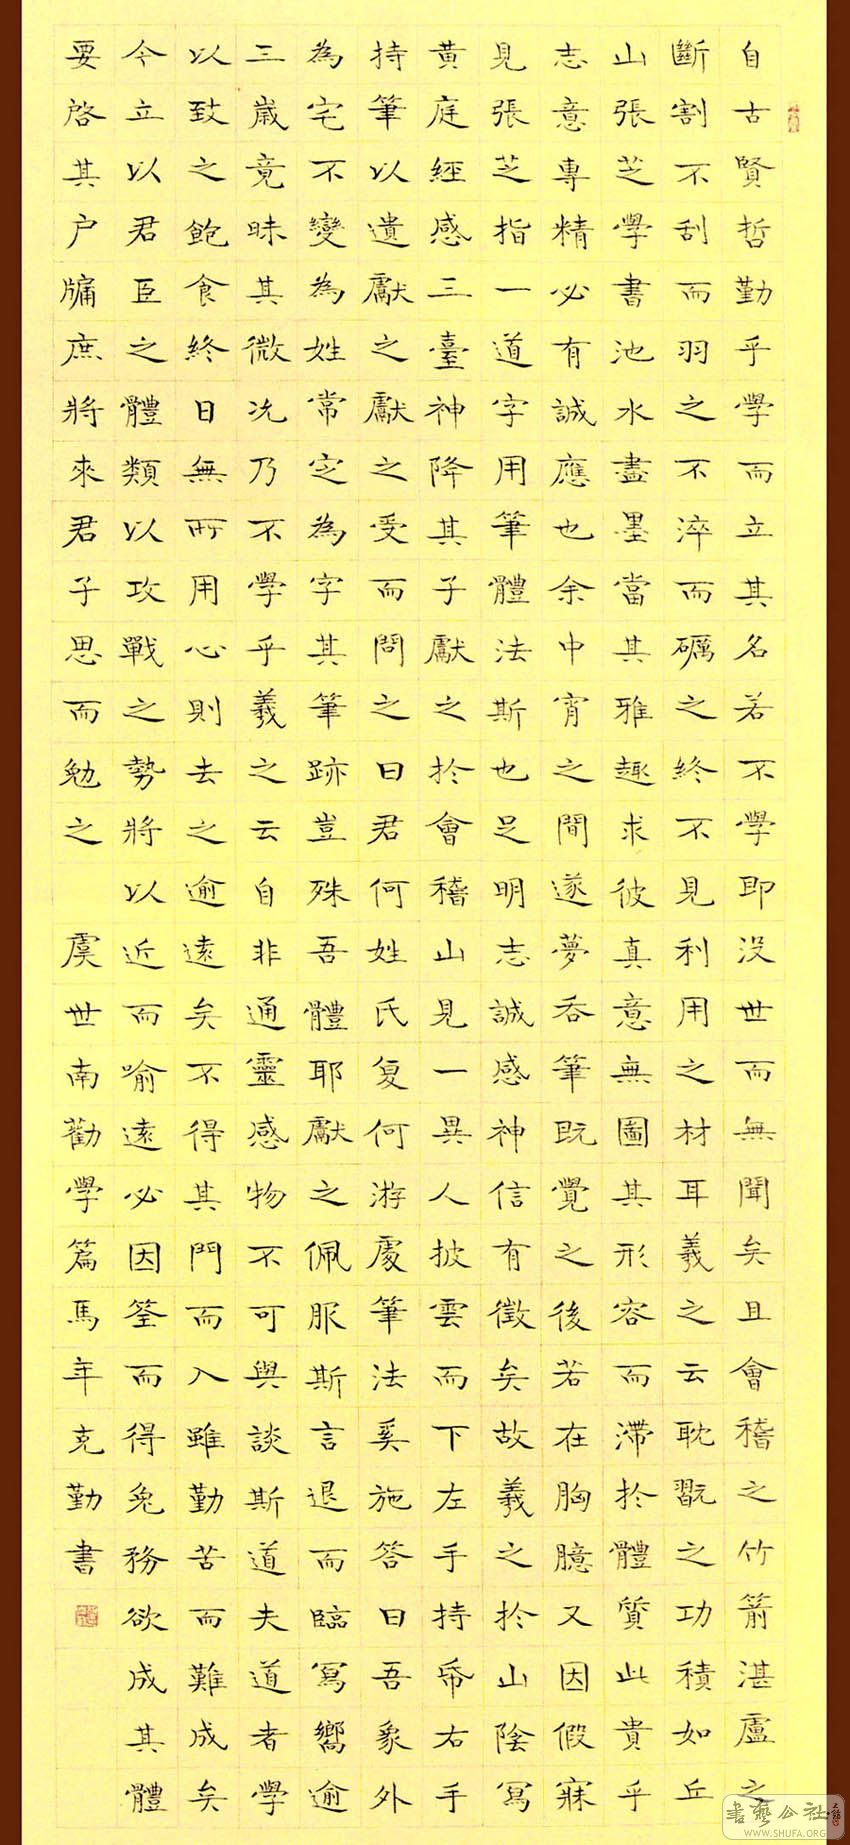 自古賢哲勤乎學而立其名若不學即没世而無聞矣且會稽之竹箭湛盧之
斷割不刮而羽之不淬而礪之終不見利用之材耳羲之云耽翫之功積如丘
山張芝學書池水盡墨當其雅趣求彼真意無圖其形容而滯於體質此貴乎
志意專精必有誠應也余中宵之間遂夢吞筆既覺之後若在胸臆又因假寐
見張芝指一道字用筆體法斯也足明志誠感神信有徵矣故羲之於山陰寫
黃庭經感三臺神降其子獻之於會稽山見一異人披雲而下左手持帋右手
持筆以遺獻之獻之受而問之曰君何姓氏复何游處筆法奚施答曰吾象外
為宅不變為姓常定為字其筆跡豈殊吾體耶獻之佩服斯言退而臨寫嚮逾
三歲竟昧其微况乃不學乎羲之云自非通靈感物不可與談斯道夫道者學
以致之飽食終日無所用心則去之逾遠矣不得其門而入雖勤苦而難成矣
今立以君臣之體類以攻戰之勢將以近而喻遠必因筌而得兔務欲成其體
要啓其户牖庶將來君子思而勉之 虞世南勸學篇馬年克勤書
書藝公社
WWW.SHUFA.ORG